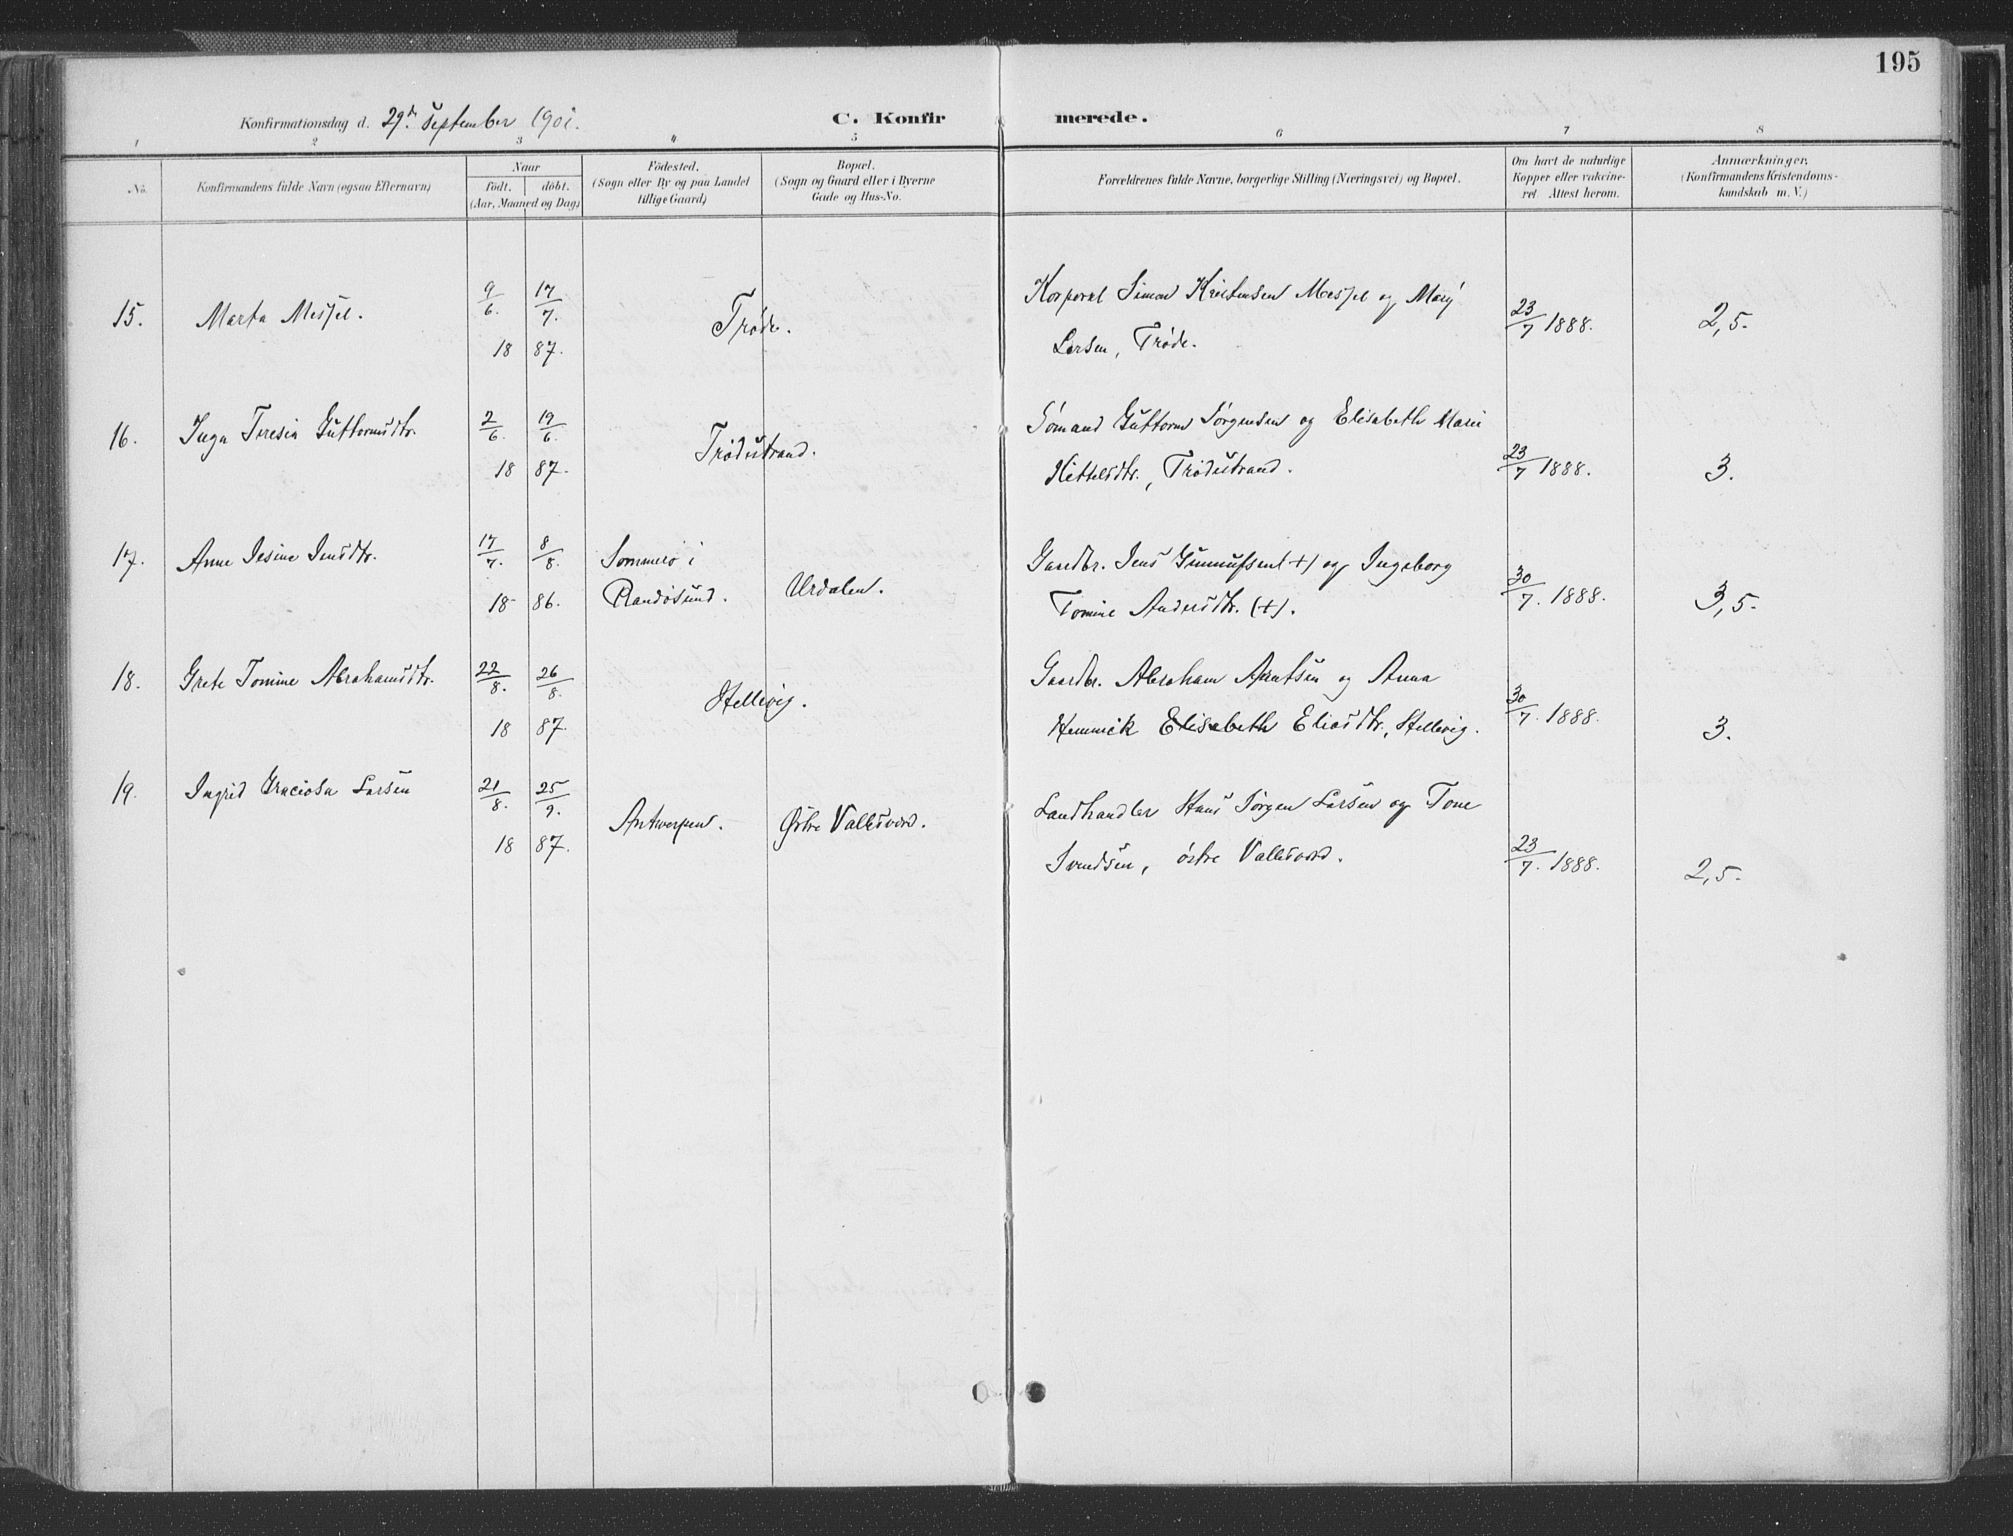 195
Konfirmationsdag d. 29de September 1901.
C. Konfirmerede.
1 2 3 4 5 6 7 8
No.
Konfirmandens fulde Navn (ogsaa Efternavn)
Naar
født. døbt.
(Aar, Maaned og Dag)
Fødested.
(Sogn eller By og paa Landet
tillige Gaard)
Bopæl.
(Sogn og Gaard eller i Byerne
Gade og Hus-No.
Forældrenes fulde Navne, borgerlige Stilling (Næringsvei) og Bopæl.
Om havt de naturlige
Kopper eller vakcine-
ret. Attest herom.
Anmærkninger.
(Konfirmandens Kristendoms-
kundskab m. V.)
15. Marta Messel. 9/6. 17/7. Trøde. Korporal Simon Kristensen Messel og Mary
18 87. Larsen, Trøde. 23/7 1888. 2,5.
16. Inga Teresia Guttormsdtr. 2/6. 19/6. Trødestrand. Sømand Guttorm Jørgensen og Elisabeth Marie
18 87. Kittelsdtr., Trødestrand. 23/7 1888. 3.
17. Anne Jesine Jensdtr. 17/7. 8/8. Sommerø i Gaardbr. Jens Gunnufsen (+) og Ingeborg
18 86. Randøsund. Urdalen. Tomine Andersdtr. (+). 30/7. 1888. 3,5.
18. Grete Tomine Abrahamsdtr. 22/8. 26/8. Hellevig. Gaardbr. Abraham Arntsen og Anna
18 87. Hennrick Elisabeth Eliasdtr., Hellevig. 30/7. 1888. 3.
19. Ingrid Graciosa Larsen 21/8. 25/9. Antwerpen. Østre Vallesværd. Landhandler Hans Jørgen Larsen og Tone
18 87. Svendsen, østre Vallesværd. 23/7. 1888. 2,5.